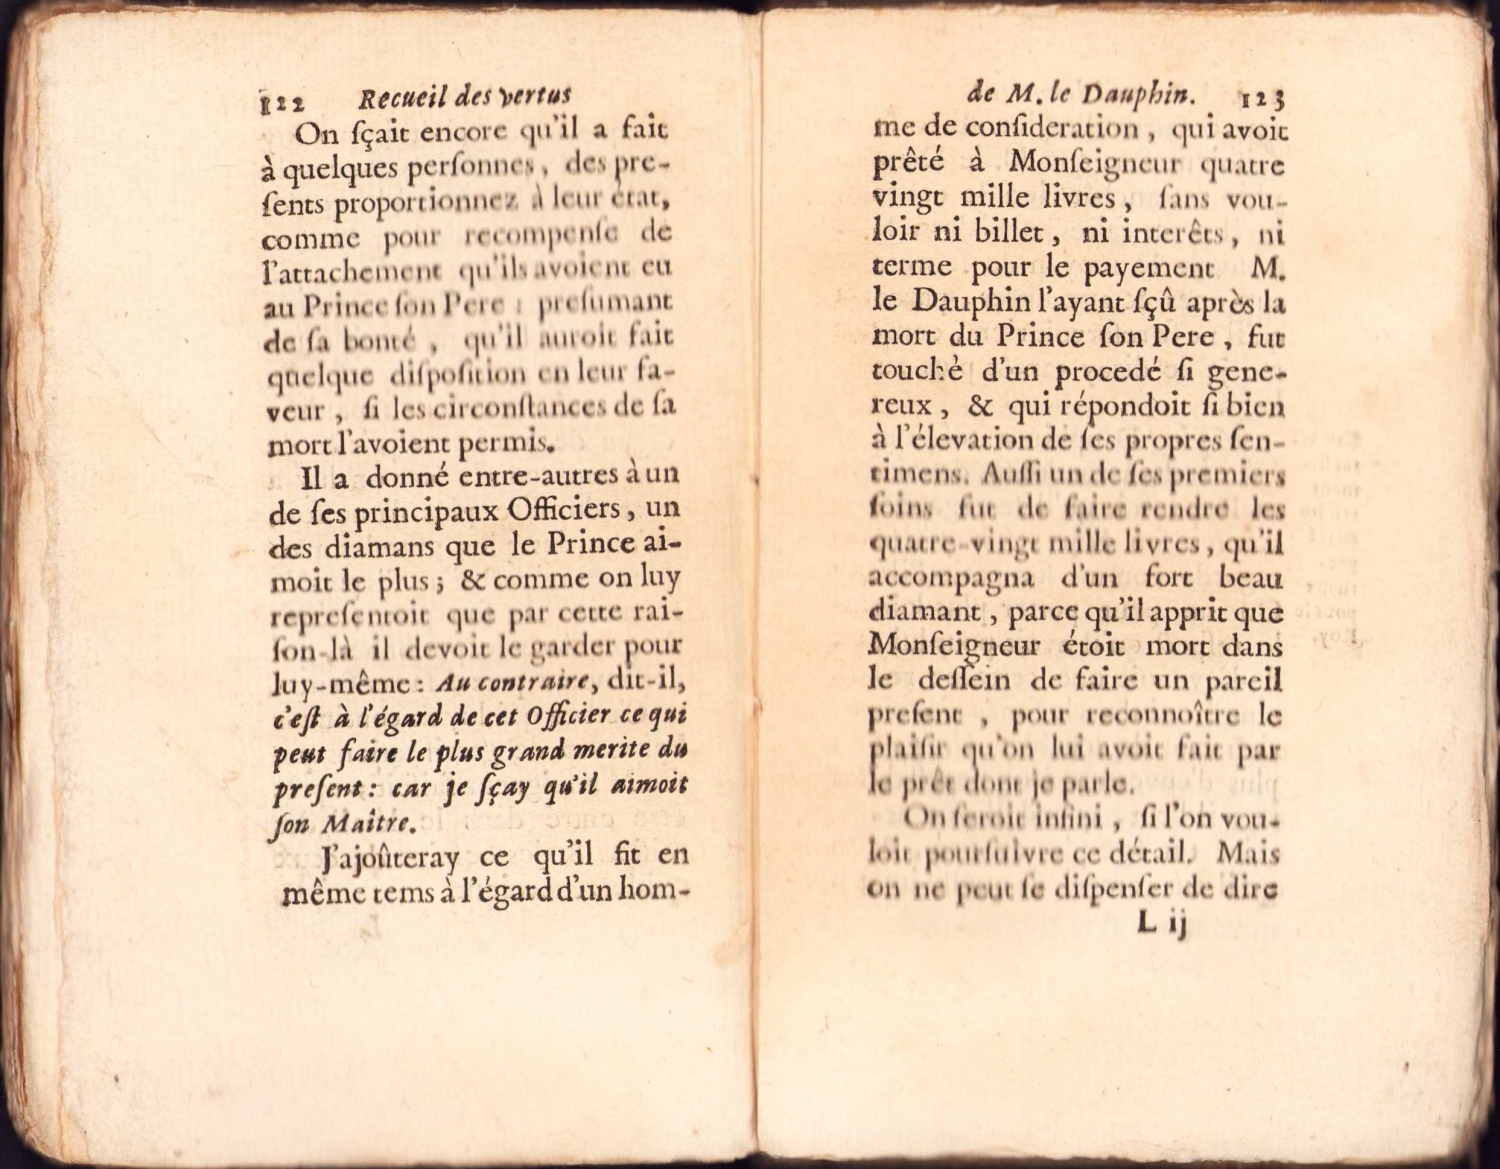 122 Recueil des vertus
On sçait encore qu'il a fait
à quelques perſonnes, des pre-
ſents proportionnez à leur état,
comme pour recompenſe de
l'attachement qu'ils avoient eu
au Prince ſon Pere : preſumant
de ſa bonté, qu'il auroit fait
quelque diſpoſition en leur fa-
veur, ſi les circonſtances de ſa
mort l'avoient permis.
Il a donné entre-autres à un
de ſes principaux Officiers, un
des diamans que le Prince ai-
moit le plus ; & comme on luy
repreſentoit que par cette rai-
ſon-là il devoit le garder pour
luy-même : Au contraire, dit-il,
c'eſt à l'égard de cet Officier ce qui
peut faire le plus grand merite du
preſent : car je ſçay qu'il aimoit
ſon Maître.
J'ajoûteray ce qu'il fit en
même tems à l'égard d'un hom-
de M. le Dauphin. 123
me de conſideration, qui avoit
prêté à Monſeigneur quatre
vingt mille livres, ſans vou-
loir ni billet, ni interêts, ni
terme pour le payement M.
le Dauphin l'ayant ſçû après la
mort du Prince ſon Pere, fut
touché d'un procedé ſi gene-
reux, & qui répondoit ſi bien
à l'élevation de ſes propres ſen-
timens. Auſſi un de ſes premiers
ſoins fut de faire rendre les
quatre-vingt mille livres, qu'il
accompagna d'un fort beau
diamant, parce qu'il apprit que
Monſeigneur étoit mort dans
le deſſein de faire un pareil
preſent, pour reconnoître le
plaiſir qu'on lui avoit fait par
le prêt dont je parle.
On ſeroit infini, ſi l'on vou-
loit pourſuivre ce détail. Mais
on ne peut ſe diſpenſer de dire
L ij